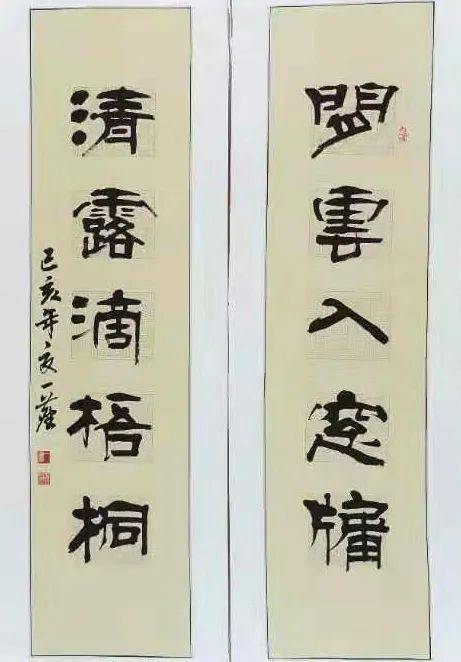 閒雲入窓牖
清露滴梧桐
己亥年夏一